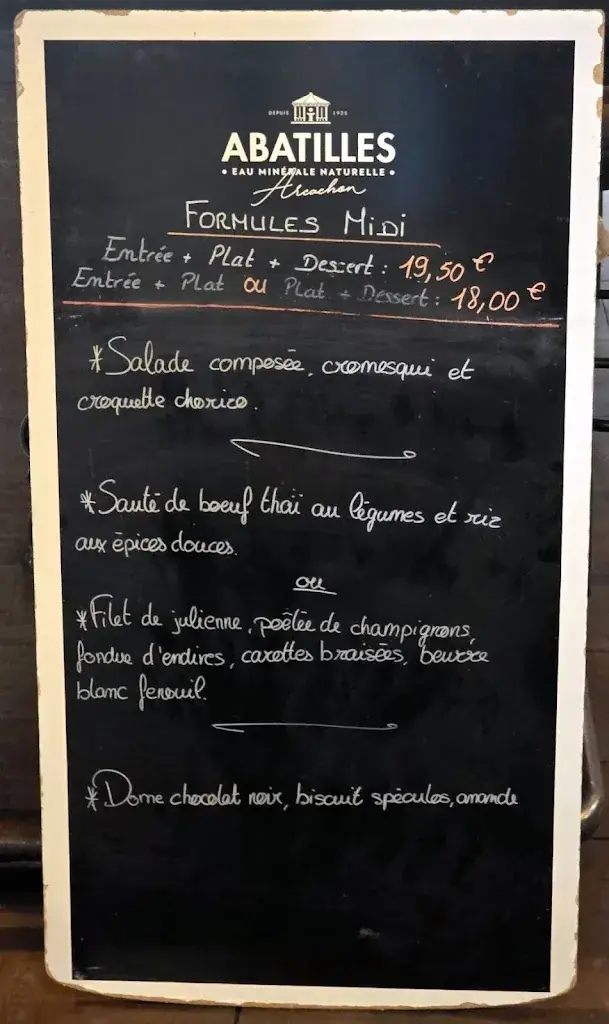 DEPUIS 1925
ABATILLES
• EAU MINÉRALE NATURELLE •
Arcachon
FORMULES MiDi
Entrée + Plat + Dessert : 19,50 €
Entrée + Plat ou Plat + Dessert : 18,00 €
*Salade composée, cromesqui et
croquette chorico.
*Sauté de boeuf thaï au légumes et riz
aux épices douces.
ou
*Filet de julienne, poêlée de champignons,
fondue d'endives, carottes braisées, beurre
blanc fenouil.
*Dome chocolat noir, biscuit spéculos, amande